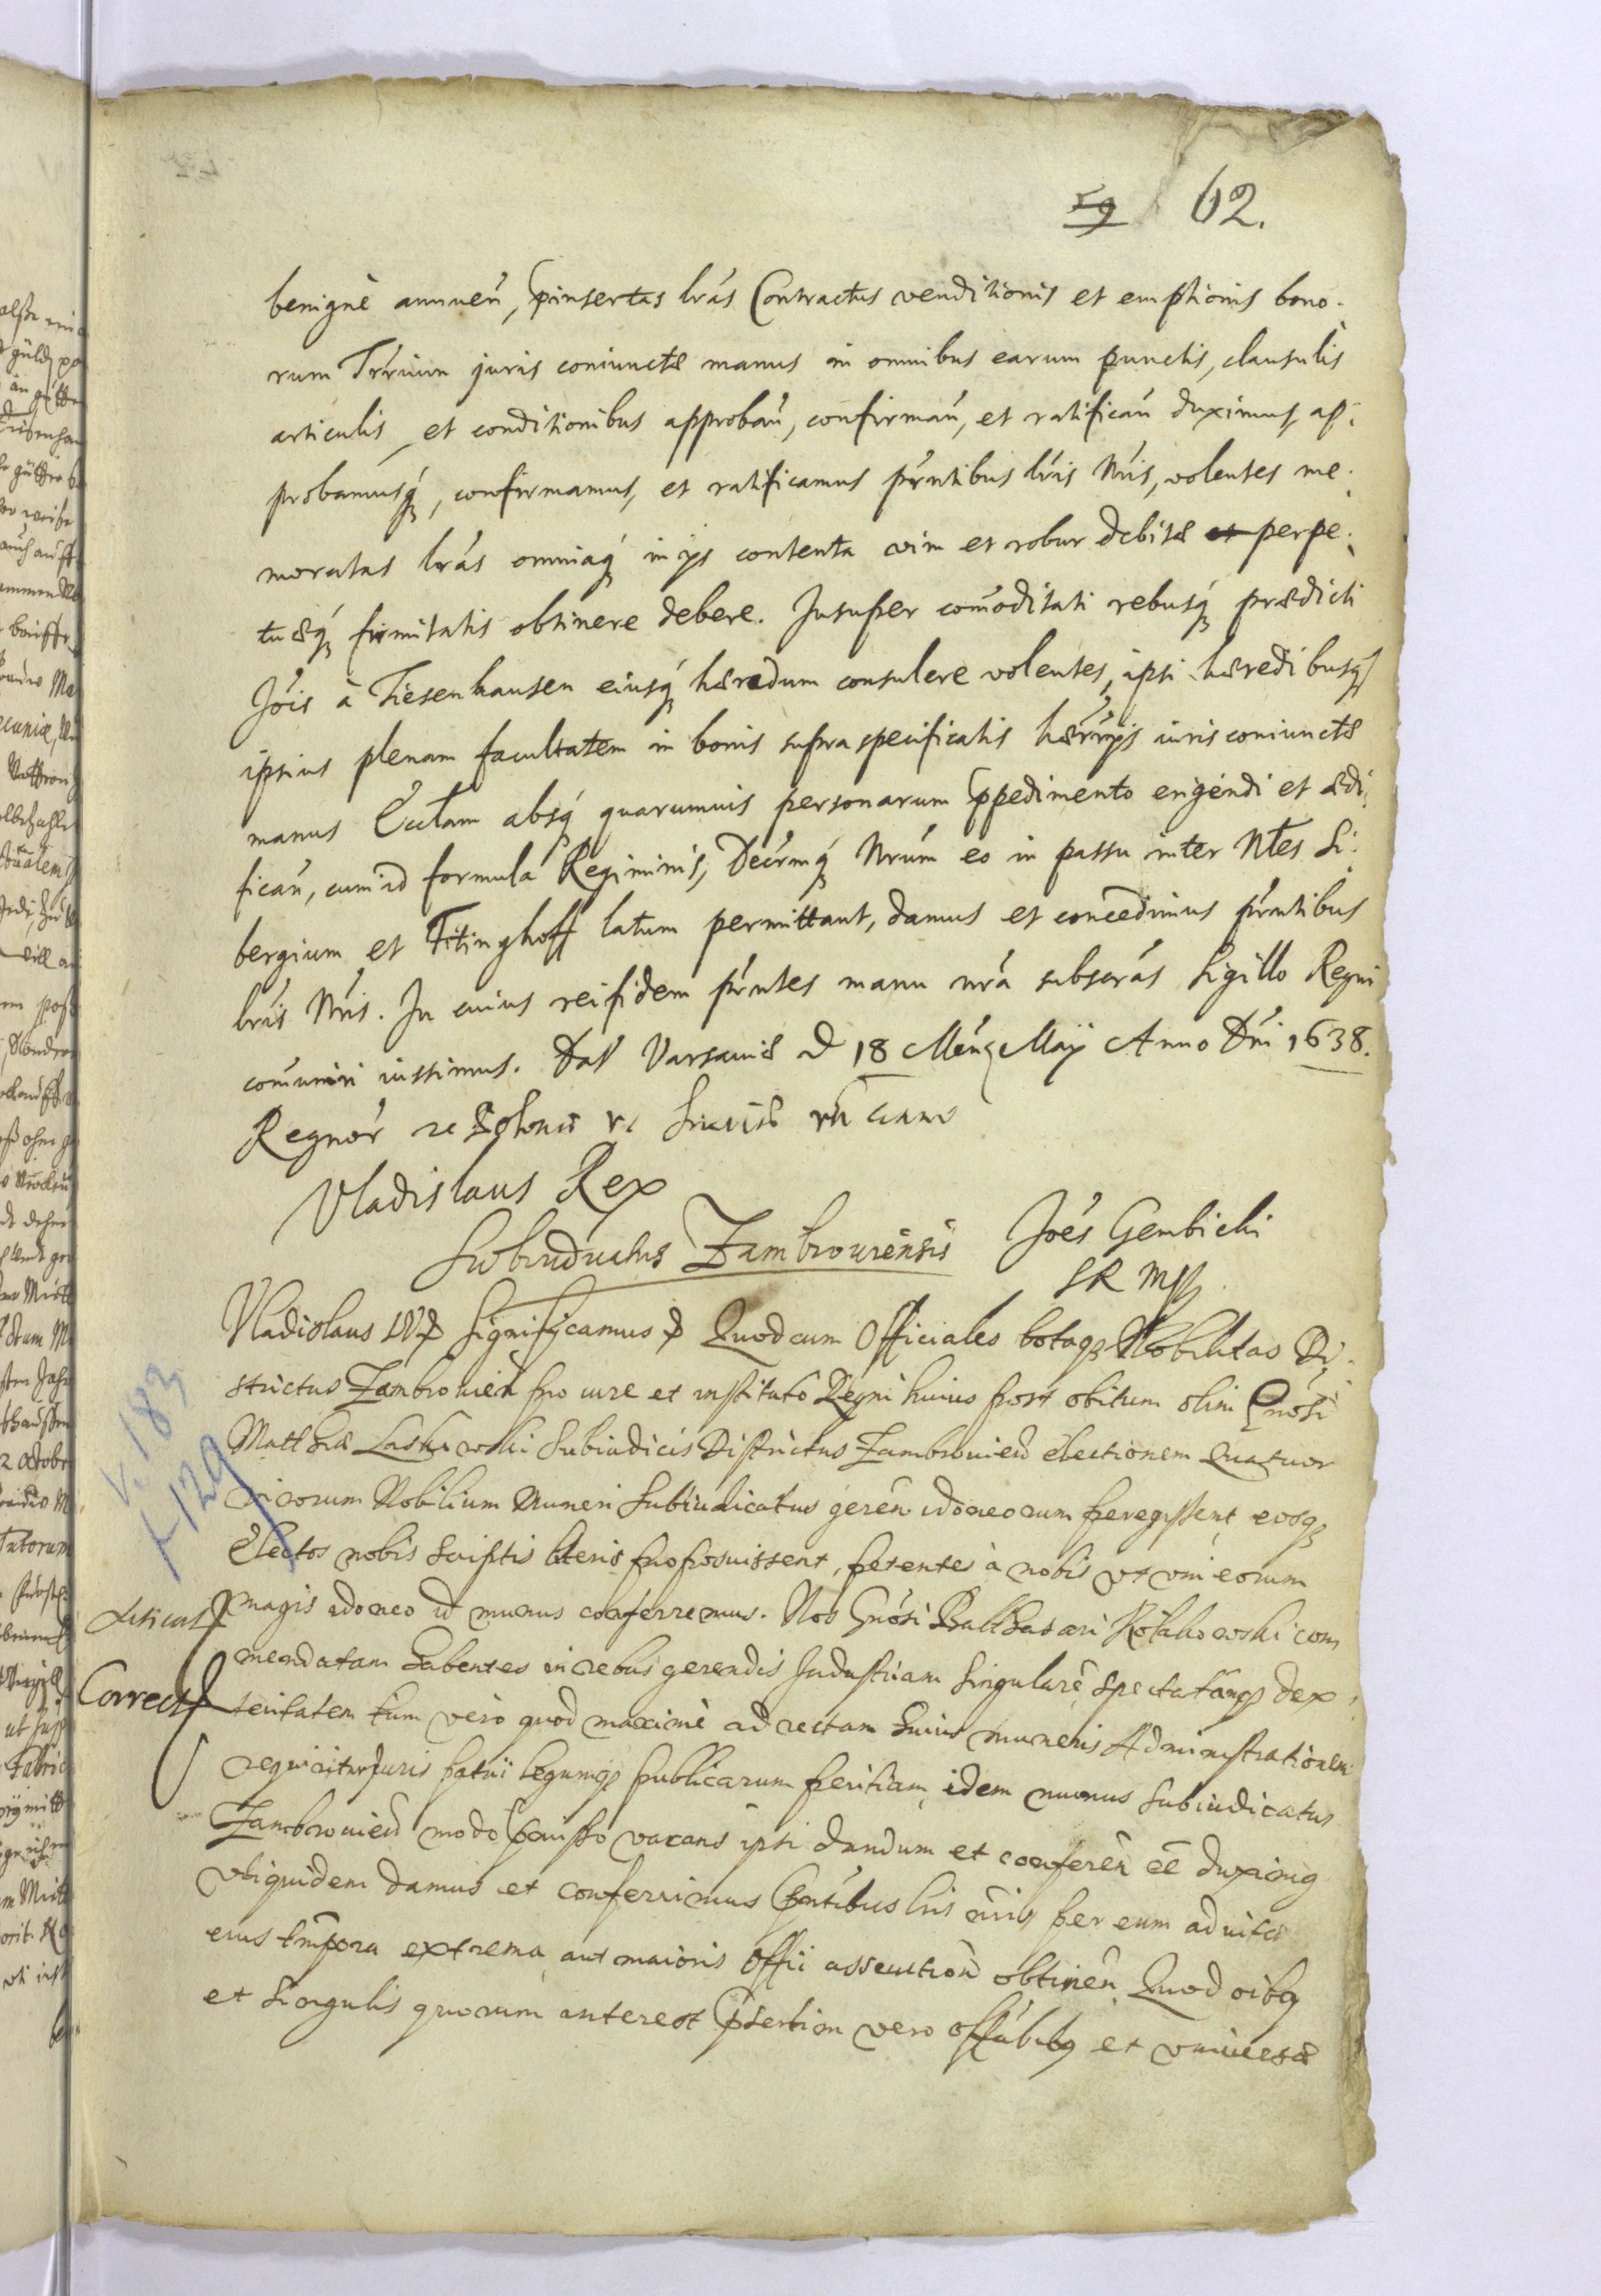 59 62.
benignè annuen̄, p̄insertas lr̄as Contractus venditionis et emptionis bono-
rum juris coniunctæ manus in omnibus earum punctis, clausulis
articulis, et conditionibus approban̄, confirman̄, et ratifican̄ duximus, ap-
probamusq́, confirmamus, et ratificamus pr̄ntibus lr̄is Nr̄is, volentes me-
moratas lr̄as omniaq́ in ijs contenta vim et robur debitæ et perpe-
tuæq́ firmitatis obtinere debere. Insuper com̄oditati rebusq́ prædicti
Jōis à Tiesenhausen eiusq́ hæredum consulere volentes, ipsi hæredibusq́
ipsius plenam facultatem in bonis supra specificatis iuris coniunctæ
manus absq́ quarumuis personarum p̄pedimento erigendi et ædi-
fican̄, cum id formula Regiminis, Decr̄mq́ Nr̄um eo in passu inter Nles Si-
bergium et Fitinghoff latum permittant, damus et concedimus pr̄ntibus
lr̄is Nr̄is. In cuius rei fidem pr̄ntes manu nr̄a subscr̄as Sigillo Regni
com̄uniri iussimus. Dat Varsauiæ d 18 Men̄s Maÿ Anno Dn̄i 1638.
Regnor̄
Vladislaus Rex
Joēs Gembicki
SR mp
Subiudicatus Zambrouiensis
Vladislaus IV Significamus Quod cum Officiales totaq́ Nobilitas Di-
strictus Zambrouien̄ pro iure et instituto Regni huius post obitum olim Gn̄osi
Matthiæ Laskowski Subiudicis Districtus Zambrouien̄ electionem Quatuor
virorum Nobilium Muneri Subiudicatus geren̄ idoneorum peregissent eosq́
Electos nobis scriptis literis proposuissent, petentes à nobis vt vni eorum
magis idoneo id munus conferremus. Nos Gn̄osi Balthasari Kołakowski com
mendatam habentes in rebus gerendis Industriam Singularē spectatamq́ dex-
Correct
teritatem tum vero quod maximè ad rectam huius muneris Administrationem
requiritur Juris patrii legumq́ publicarum peritiam idem munus Subiudicatus
Zambrouien̄ modo p̄misso vacans ipsi dandum et conferen̄ eē duximq
vtiquidem damus et conferrimus p̄ntibus lris nr̄is per eum ad vitæ
eius tmp̄ora extrema aut maioris Offii assecution̄ obtinen̄ Quod oibq
et Singulis quorum interest p̄sertim vero et vniuersæ
V. 183
F 129